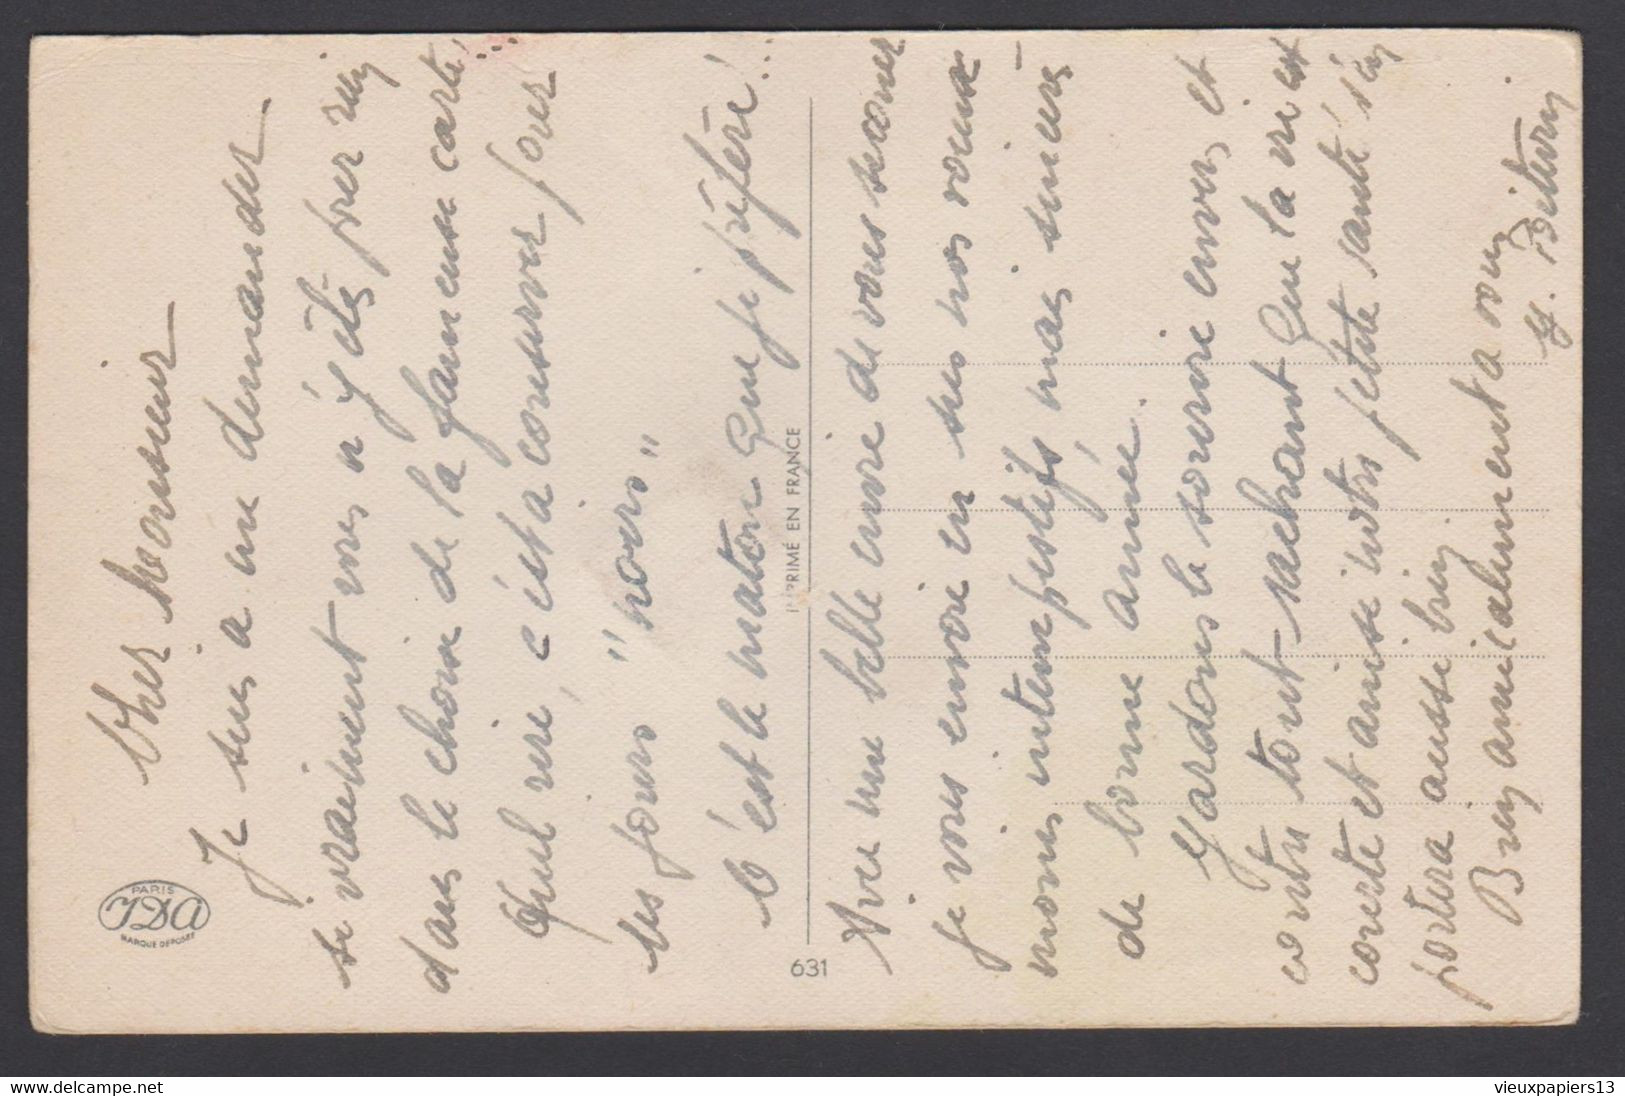 Cher Monsieur
Je suis à me demander
si vraiment vous n'y êtes pour rien
dans le choix de la fameuse carte!...
Quel rire, c'est à conserver pour
les jours "noirs"
C'est le maton que je préfère!..
Avec une belle envie de vous secouer
je vous envoie en sus nos vœux
moins intempestifs mais sincères
de bonne année.
Gardons le sourire envers et
contre tout sachant que la vie est
courte et ainsi notre petite santé s'en
portera aussi bien
Bien amicalement à vous
PARIS
IDA
MARQUE DEPOSÉE
631
IMPRIMÉ EN FRANCE
www.delcampe.net
vieuxpapiers13